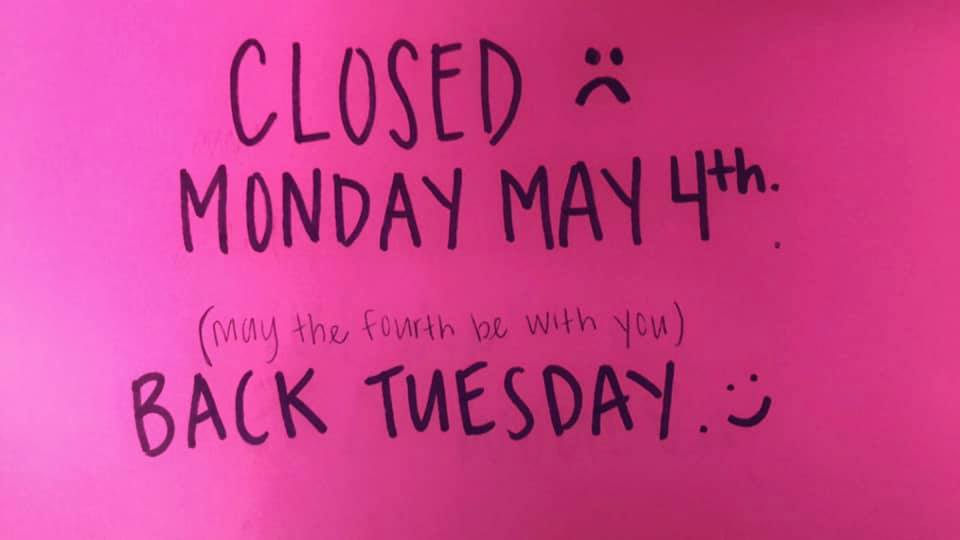 CLOSED :(
MONDAY MAY 4th.
(may the fourth be with you)
BACK TUESDAY. :)